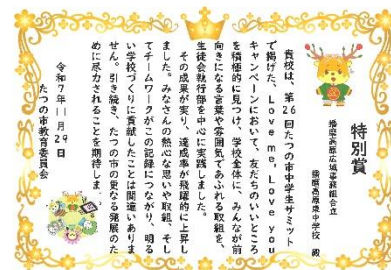 特別賞
播磨高原広域事務組合立
播磨高原東中学校 殿
貴校は、第26回たつの市中学生サミット
で掲げた、Love me, Love you
キャンペーンにおいて、友だちのいいところ
を積極的に見つけ、学校全体に、みんなが前
向きになる言葉や雰囲気であふれる取組を、
生徒会執行部を中心に実践しました。
その成果が実り、達成率が飛躍的に上昇し
ました。みなさんの熱心な思いや取組、そし
てチームワークがこの記録につながり、明る
い学校づくりに貢献したことは間違いありま
せん。引き続き、たつの市の更なる発展のた
めに尽力されることを期待します。
令和7年11月29日
たつの市教育委員会